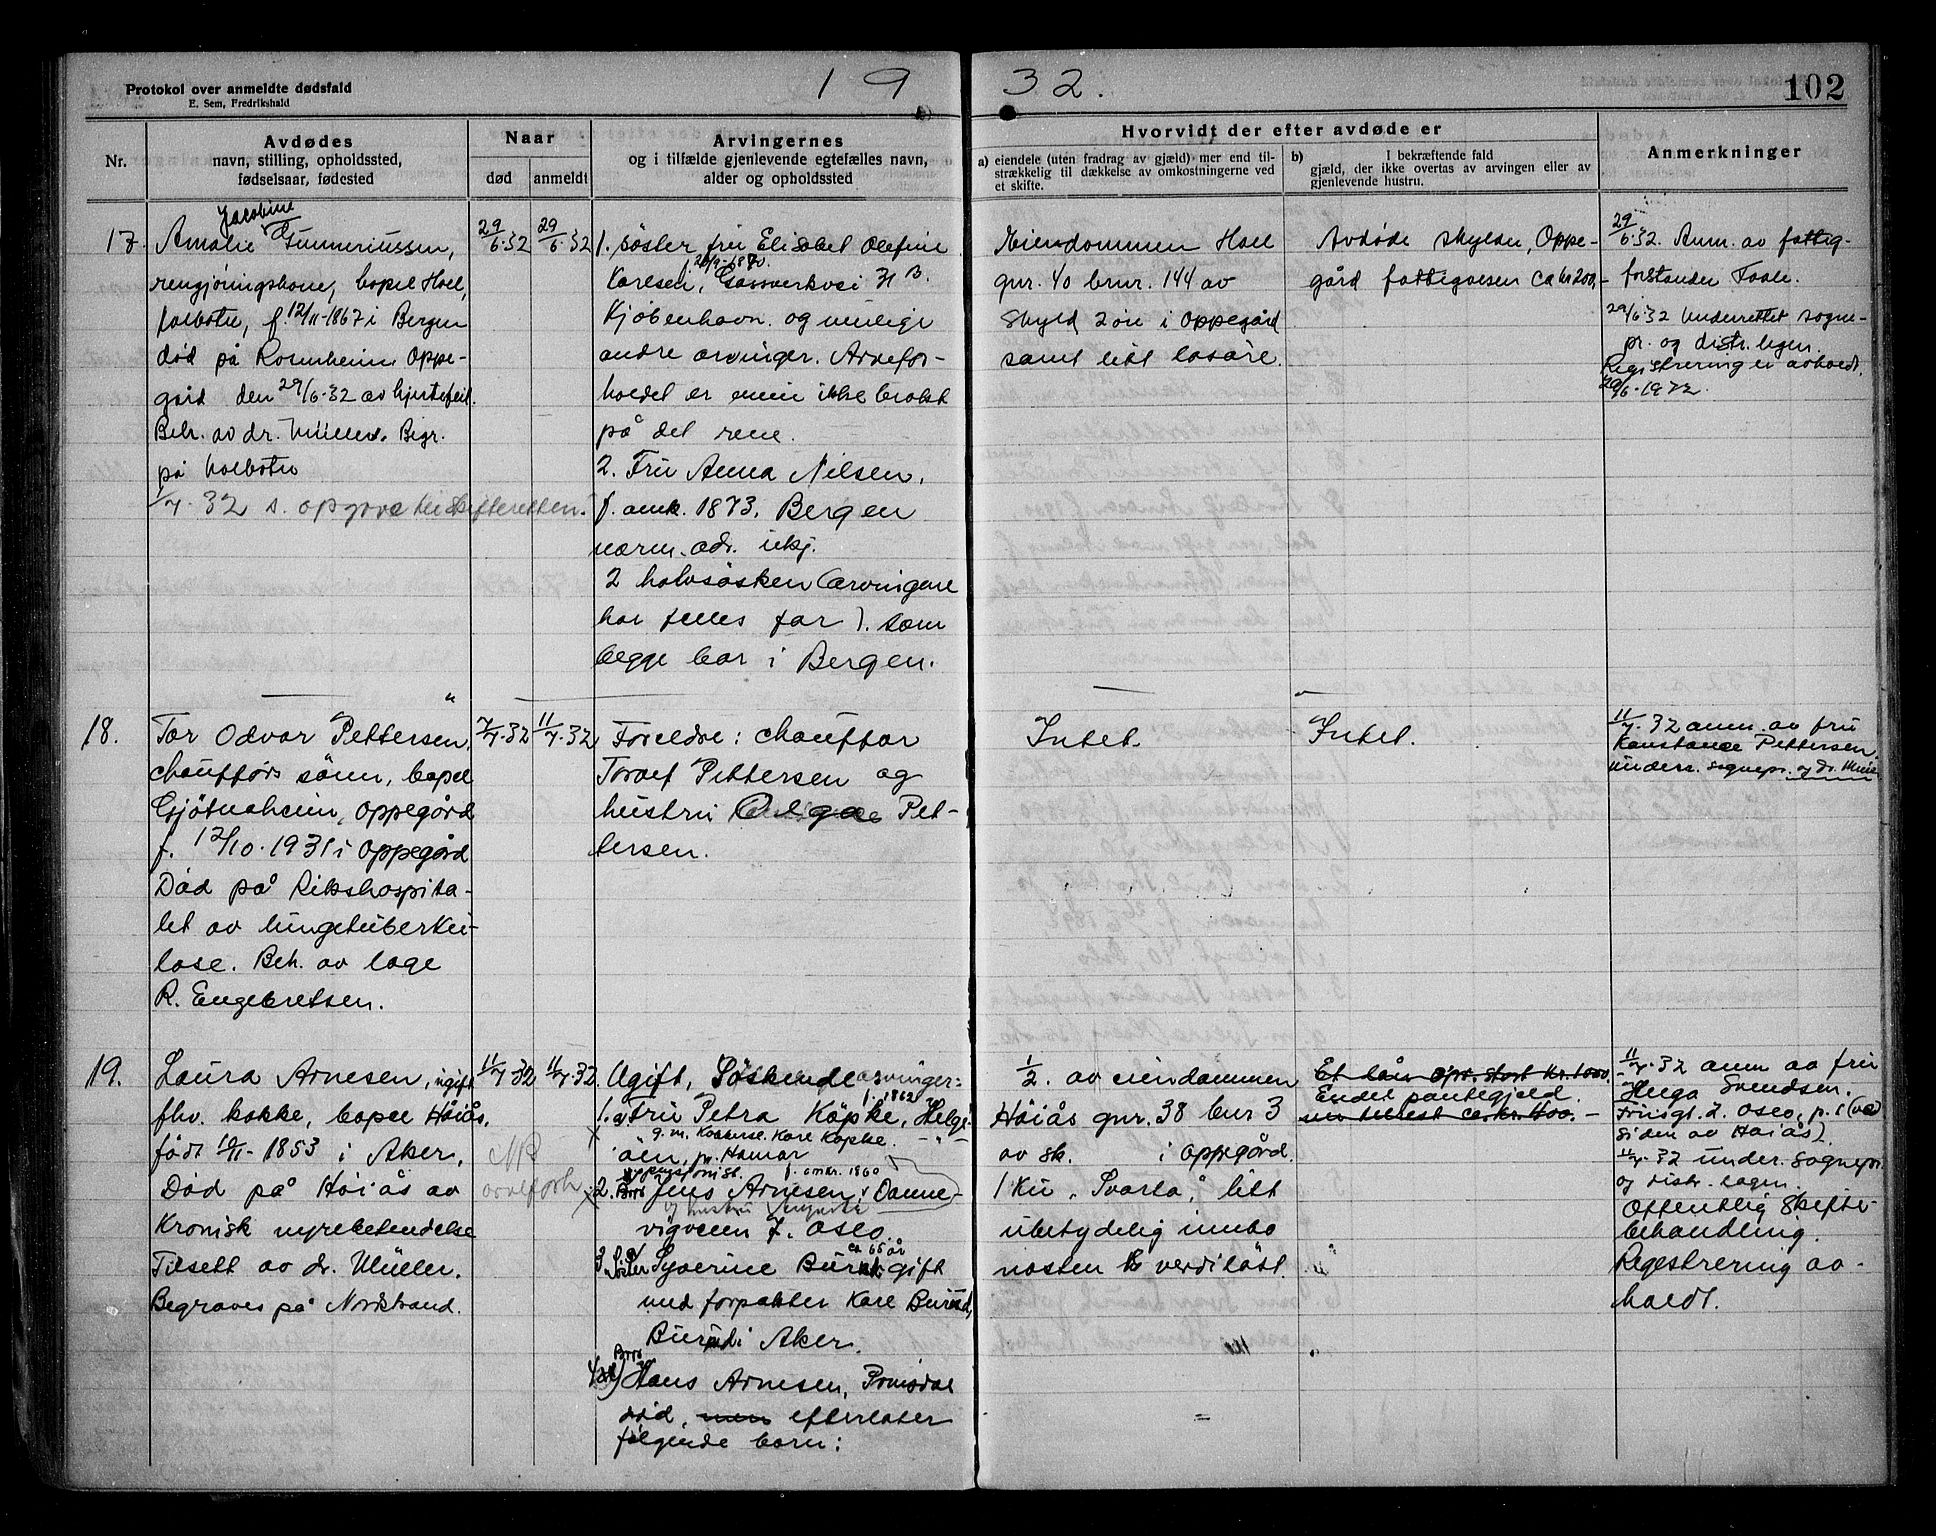 Protokol over anmeldte dødsfald
E. Sem, Fredrikshald
1 9 3 2.
102
Nr.
Avdødes
navn, stilling, opholdssted,
fødselsaar, fødested
Naar
død
anmeldt
Arvingernes
og i tilfælde gjenlevende egtefælles navn,
alder og opholdssted
Hvorvidt der efter avdøde er
a) eiendele (uten fradrag av gjæld) mer end til-
strækkelig til dækkelse av omkostningerne ved
et skifte.
b) I bekræftende fald
gjæld, der ikke overtas av arvingen eller av
gjenlevende hustru.
Anmerkninger
17.
Jacobine
Amalie Gunneriussen,
rengjøringskone, bopel Hoel,
Kolbotn, f. 12/11-1867 i Bergen
død på Rosenheim Oppe-
gård den 29/6-32 av hjertefeil.
Beh. av dr. Müller. Begr.
på Kolbotn
1/7-32 s. opgave til Skifteretten.
29/6-32
29/6-32
1. søster, fru Elisabet Olefine
Karlsen, Gassverksvei 31 B.
Kjøbenhavn. og mulige
andre arvinger. Arvefor-
holdet er ennu ikke brakt
på det rene.
2. Fru Anna Nilsen,
f. omk. 1873, Bergen
nærm. adr. ukj.
2 halvsøsken (arvingene
har felles far). som
begge bor i Bergen.
Eiendommen Hoel
gnr. 40 brnr. 144 av
skyld 2 øre i Oppegård
samt litt løsøre.
Avdøde skylder Oppe-
gård fattigvesen ca kr 200,-
29/6-32. Anm. av fattig-
forstander Faale.
29/6-32 Underrettet sogne-
pr. og distr. legen.
Registrering ei avholdt.
29/6-1932
18.
Tor Odvar Pettersen,
chaufførs sønn, bopel
Gjøtunheim, Oppegård
f. 12/10-1931 i Oppegård
Død på Rikshospita-
let av lungetuberku-
lose. Beh. av læge
R. Engebretsen.
7/7-32
11/7-32
Foreldre: chauffør
Torleif Pettersen og
hustru Olga Pet-
tersen.
Intet.
Intet.
11/7-32 anm. av fru
Konstance Pettersen
underr. sognepr. og dr. Müller
19.
Laura Arnesen, ugift
fhv. kokke, bopel Høiås,
født 10/11-1853 i Aker,
Død på Høiås av
Kronisk nyrebetendelse
Tilsett av dr. Müller.
Begraves på Nordstrand.
11/7-32
11/7-32.
Ugift, Søskende arvinger:
f. 1862
1. Fru Petra Köpke, Helgø-
g. m. Kare Köpke.
øen, pr. Hamar
f. omkr. 1860
2. Bror Jens Arnesen, Danne-
vigveien 7. Oslo.
ca 65 år
3. Søster Syverine Burud gift
med forpakter Kare Burud,
Burud i Aker.
4. Bror Hans Arnesen, Romsdal
død, men efterlater
følgende barn:
1/2. av eiendommen
Høiås gnr. 38 bnr 3
av sk. i Oppegård.
1 ku "Svarta," litt
ubetydelig innbo
næsten verdiløst.
Et lån opr. stort kr. 1000.
Endel pantegjeld.
nu tilrest ca. kr. 400.-
11/7-32 anm av fru
Helga Svendsen.
Oslo,
siden av Høiås).
11/7-32 under. sognepr.
og distr. legen.
Offentlig Skifte-
behandling.
Regestrering av-
holdt.